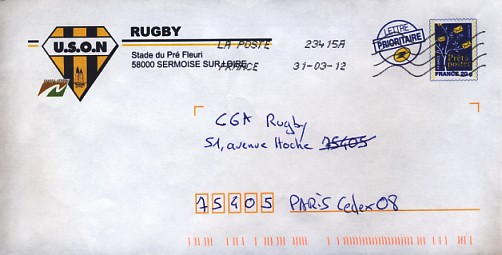 U.S.O.N
RUGBY
Stade du Pré Fleuri
58000 SERMOISE SUR LOIRE
LA POSTE 23415A
FRANCE 31-03-12
LETTRE
PRIORITAIRE
Prêt-à
poster
FRANCE 20g
CGA Rugby
51, avenue Hoche 75405
75405 PARIS Cedex 08